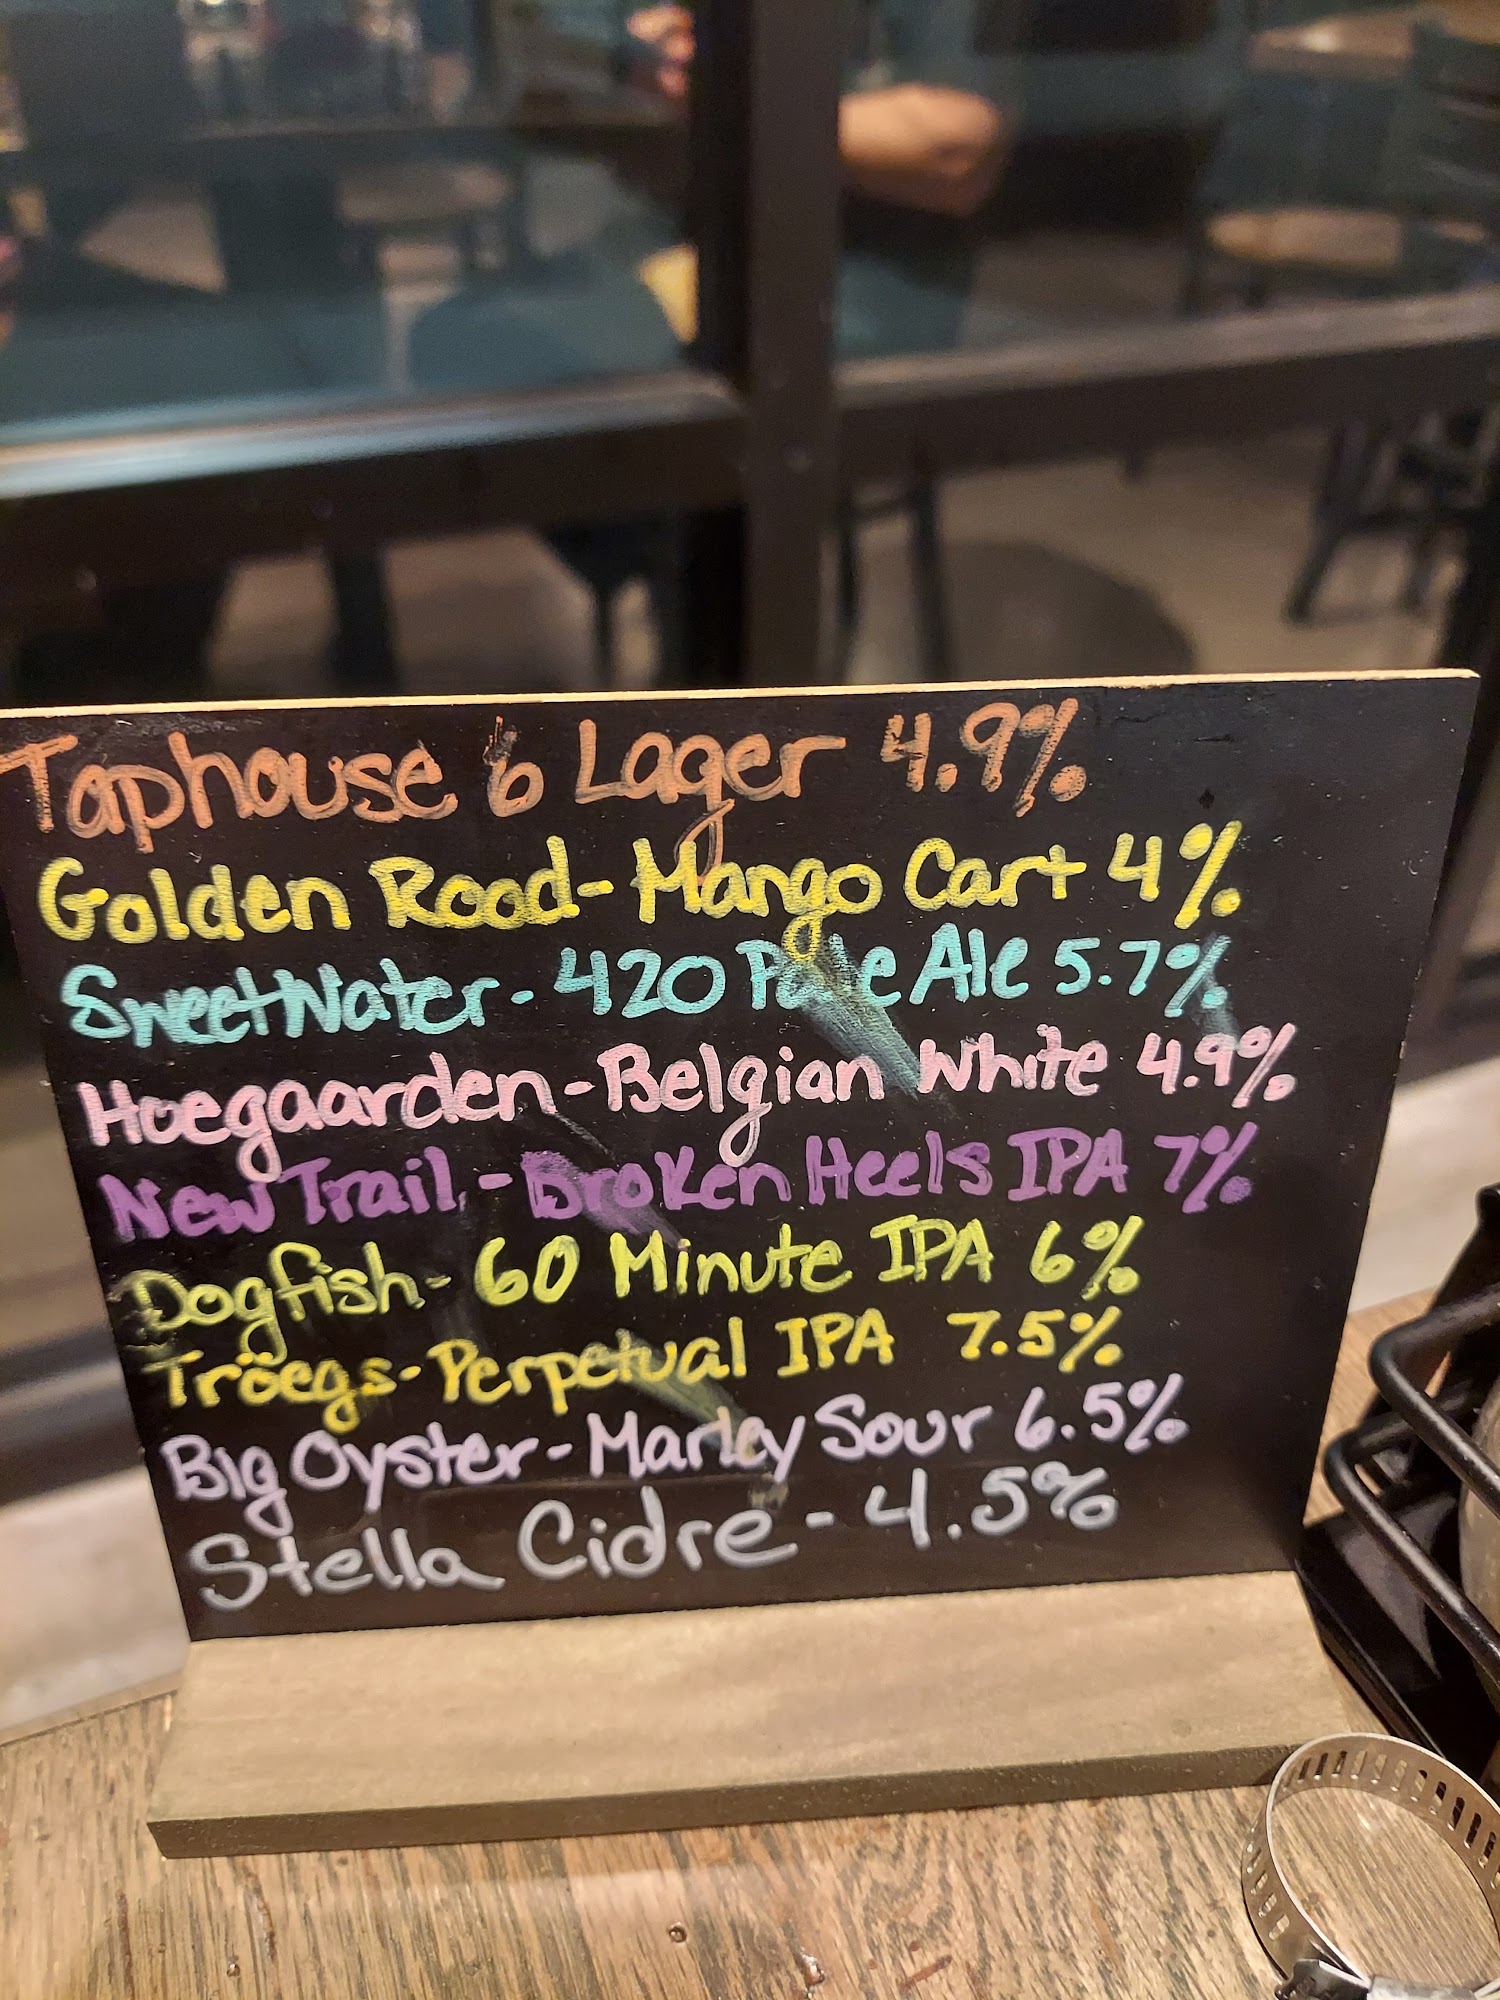 Taphouse 6 Lager 4.9%
Golden Rood - Mango Cart 4%
SweetWater - 420 Pale Ale 5.7%
Hoegaarden - Belgian White 4.9%
New Trail - Broken Heels IPA 7%
Dogfish - 60 Minute IPA 6%
Tröegs - Perpetual IPA 7.5%
Big Oyster - Marley Sour 6.5%
Stella Cidre - 4.5%